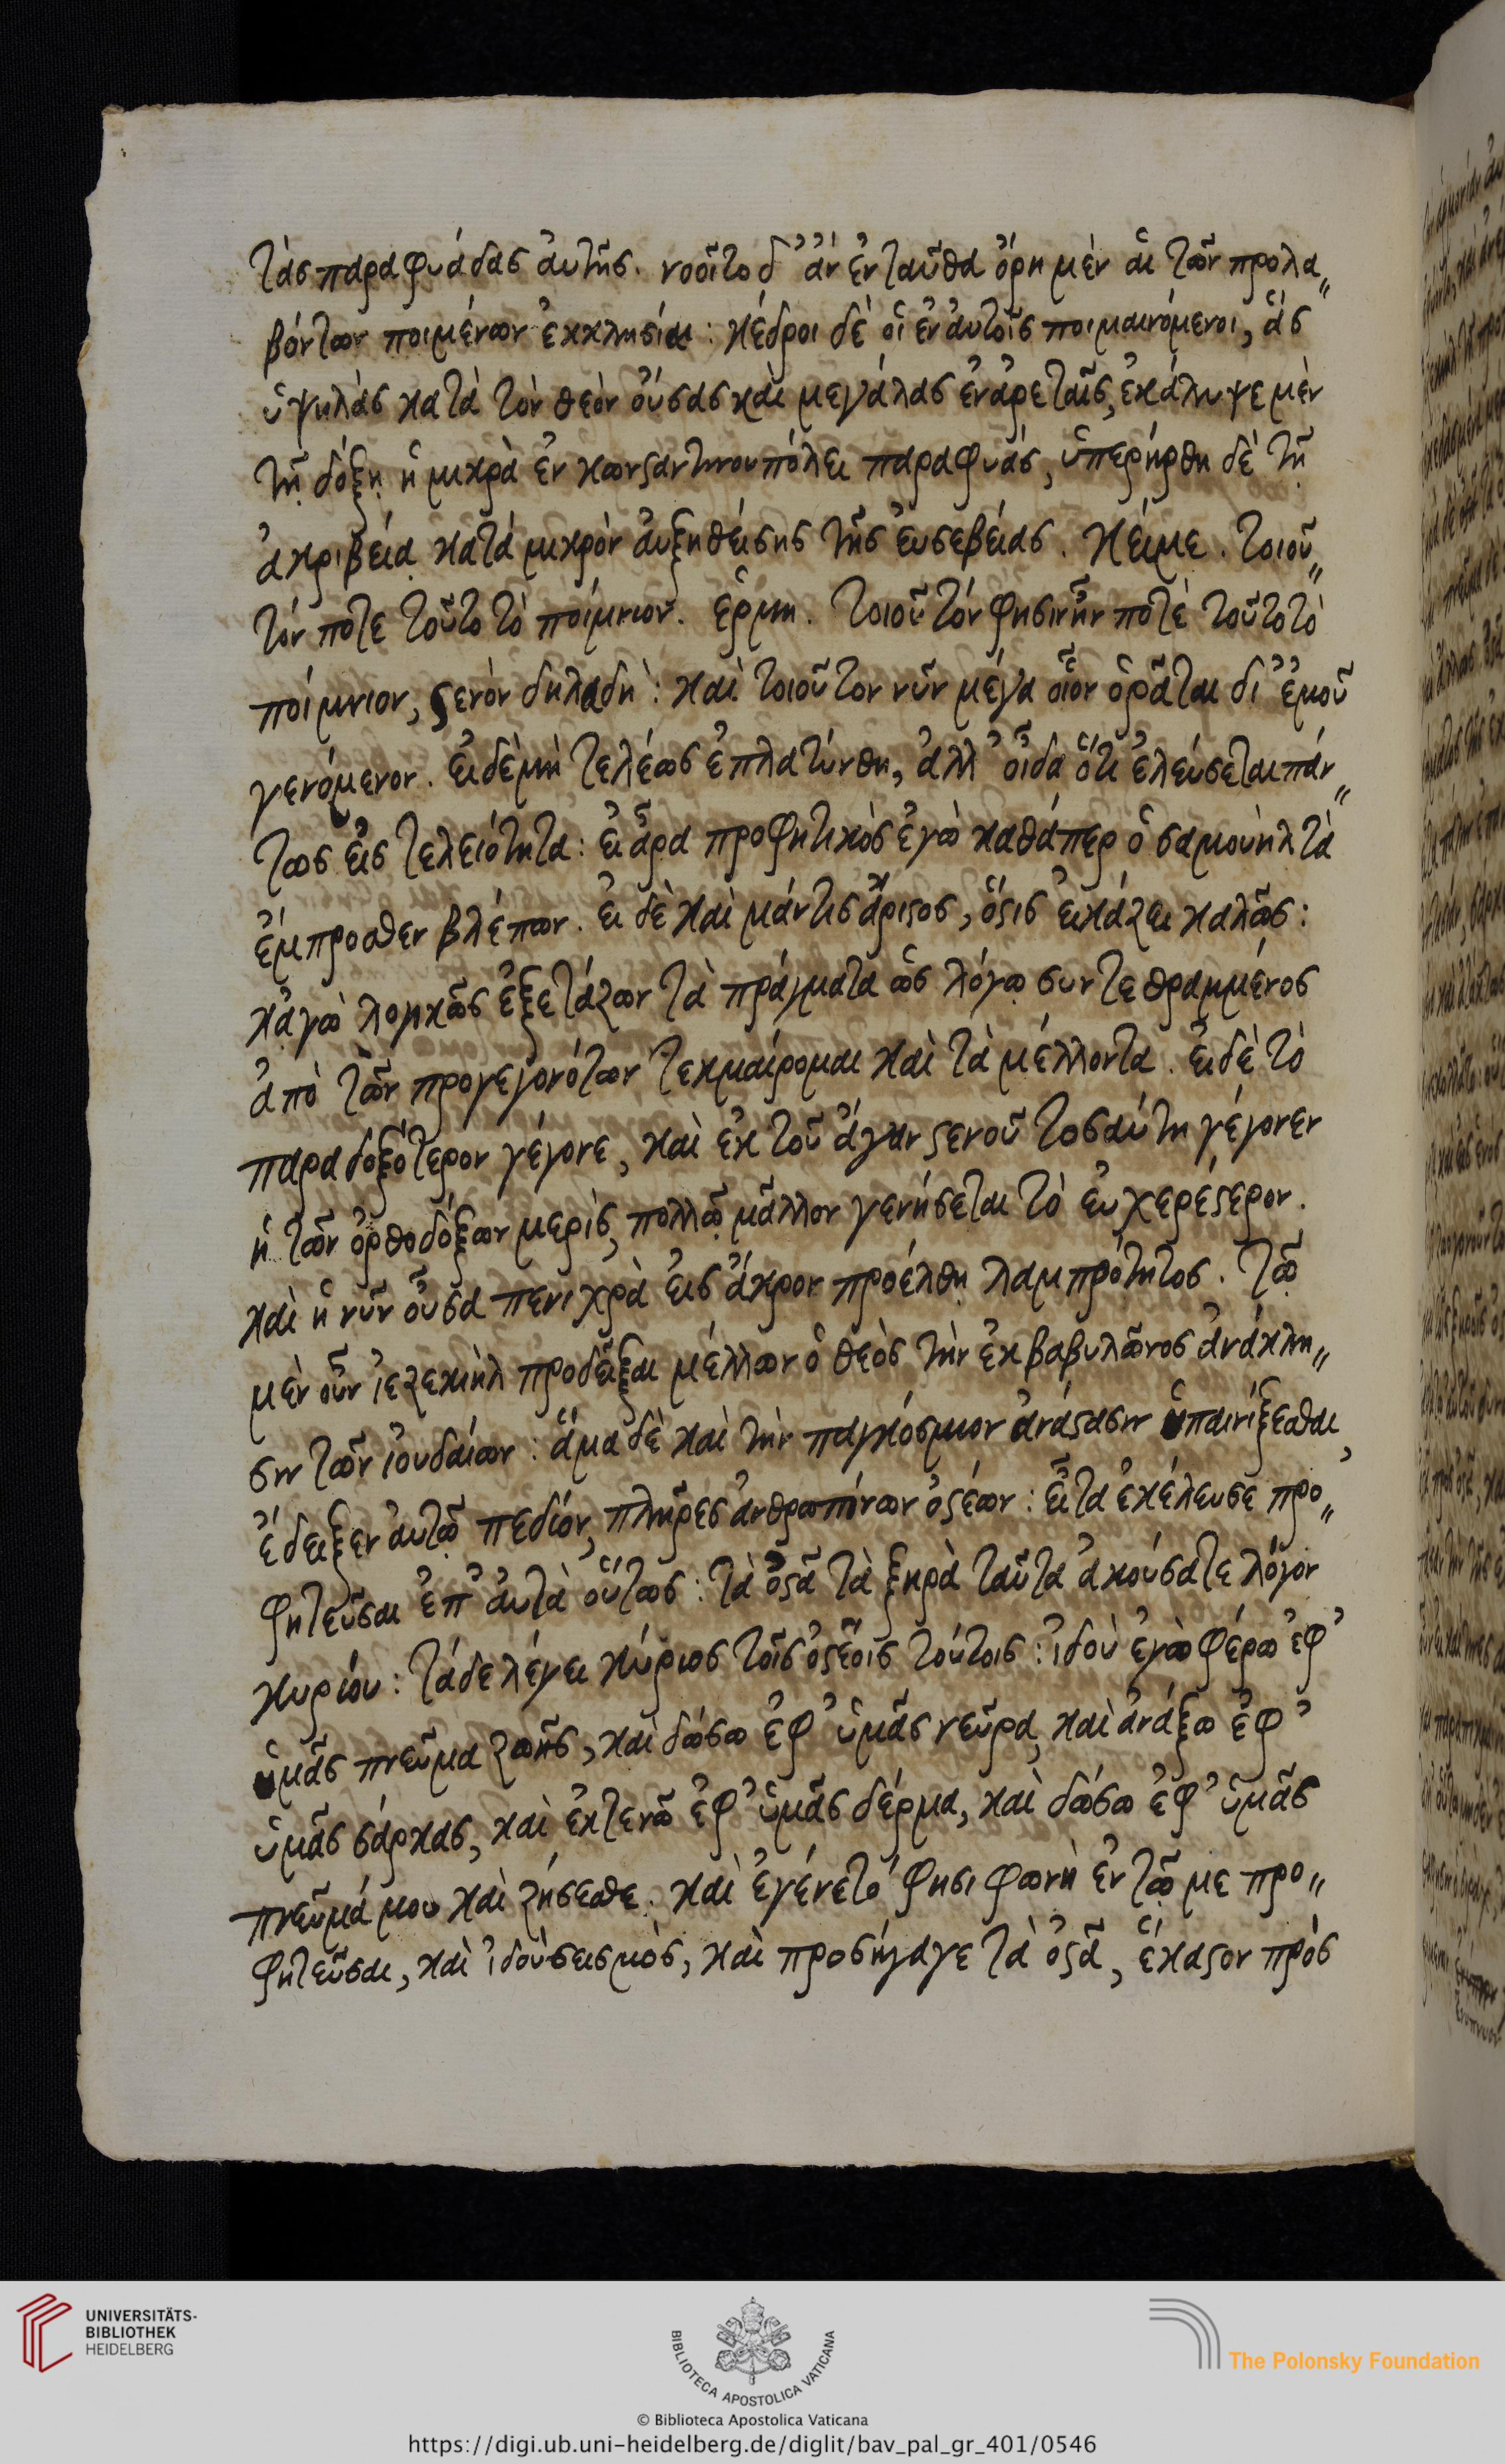 τὰς παραφυάδας ἀυτῆς. νοοῖτο δ' ἂν ἐνταῦθα ὄρη μὲν ἁι τῶν προλα„
βόντων ποιμένων ἐκκλησίαι: κέδροι δὲ ὁι ἐν ἀυτοῖς ποιμαινόμενοι, ἃς
ὑψηλὰς κατὰ τὸν θεὸν ὀύσας καὶ μεγάλας ἐν ἀρεταῖς, ἐκάλυψε μὲν
τῆ δόξῃ ἡ μικρὰ ἐν κωνϛαντινουπόλει παραφυὰς, ὑπερήρθη δὲ τῆ
ἀκριβείᾳ κατὰ μικρὸν ἀυξηθείσης τῆς ἐυσεβείας. κείμε. τοιοῦ„
τόν ποτε τοῦτο τὸ ποίμνιον. ἑρμη. τοιοῦτόν φησιν ἦν ποτὲ τοῦτο τὸ
ποίμνιον, ϛενὸν δηλαδή: καὶ τοιοῦτον νῦν μέγα οἷον ὁρᾶται δι' ἐμοῦ
γενόμενον. ἐι δὲ μὴ τελέως ἐπλατύνθη, ἀλλ' ὀῖδα ὅτι ἐλεύσεται πάν„
τως ἐις τελειότητα: ἐι ἄρα προφητικὸς ἐγὼ καθάπερ ὁ σαμουὴλ τὰ
ἔμπροσθεν βλέπων. ἐι δὲ καὶ μάντις ἄριϛος, ὅϛις ἐικάζει καλῶς:
κἀγὼ λογικῶς ἐξετάζων τὰ πράγματα ὡς λόγῳ συντεθραμμένος
ἀπὸ τῶν προγεγονότων τεκμαίρομαι καὶ τὰ μέλλοντα. ἐι δὲ τὸ
παραδοξότερον γέγονε, καὶ ἐκ τοῦ ἄγαν ϛενοῦ τοσαύτη γέγονεν
ἡ τῶν ὀρθοδόξων μερὶς, πολλῶ μᾶλλον γενήσεται τὸ ἐυχερέϛερον.
καὶ ἡ νῦν ὀῦσα πενιχρὰ ἐις ἄκρον προέλθῃ λαμπρότητος. τῶ
μὲν οὖν ἰεζεκιὴλ προδεῖξαι μέλλων ὁ θεὸς τὴν ἐκ βαβυλῶνος ἀνάκλη„
σιν τῶν ἰουδαίων: ἅμα δὲ καὶ τὴν παγκόσμιον ἀνάϛασιν ὑπαινίξεσθαι,
ἔδειξεν ἀυτῶ πεδίον, πλῆρες ἀνθρωπίνων ὀϛέων: εἶτα ἐκέλευσε προ„
φητεῦσαι ἐπ' ἀυτὰ ὅυτως: τὰ ὀϛᾶ τὰ ξηρὰ ταῦτα ἀκούσατε λόγον
κυρίου: τάδε λέγει κύριος τοῖς ὀϛέοις τούτοις: ἰδοὺ ἐγὼ φέρω ἐφ'
ὑμᾶς πνεῦμα ζωῆς, καὶ δώσω ἐφ' ὑμᾶς νεῦρα, καὶ ἀνάξω ἐφ'
ὑμᾶς σάρκας, καὶ ἐκτενῶ ἐφ' ὑμᾶς δέρμα, καὶ δώσω ἐφ' ὑμᾶς
πνεῦμά μου καὶ ζήσεσθε. καὶ ἐγένετό φησι φωνὴ ἐν τῶ με προ„
φητεῦσαι, καὶ ἰδοὺ σεισμὸς, καὶ προσήγαγε τὰ ὀϛᾶ, ἕκαϛον πρὸς
UNIVERSITÄTS-
BIBLIOTHEK
HEIDELBERG
BIBLIOTECA APOSTOLICA VATICANA
The Polonsky Foundation
© Biblioteca Apostolica Vaticana
https://digi.ub.uni-heidelberg.de/diglit/bav_pal_gr_401/0546